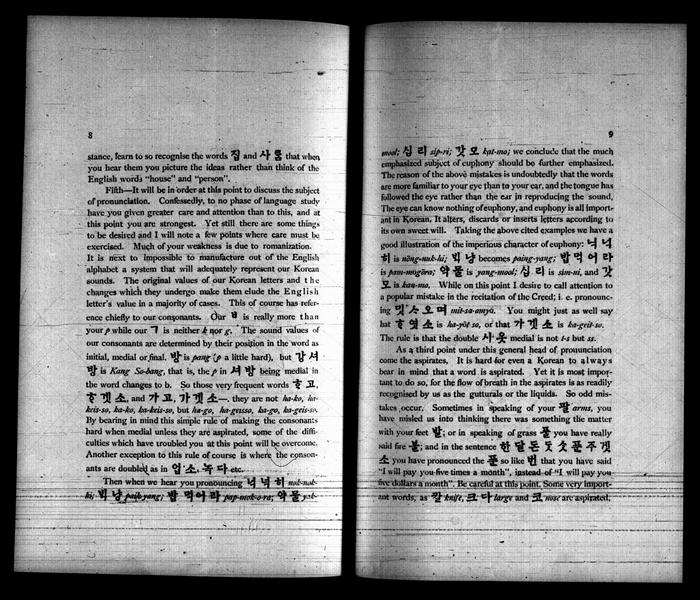 8
stance, learn to so recognise the words 집 and 사룸 that when
you hear them you picture the ideas rather than think of the
English words "house" and "person".
Fifth—It will be in order at this point to discuss the subject
of pronunciation. Confessedly, to no phase of language study
have you given greater care and attention than to this, and at
this point you are strongest. Yet still there are some things
to be desired and I will note a few points where care must be
exercised. Much of your weakness is due to romanization.
It is next to impossible to manufacture out of the English
alphabet a system that will adequately represent our Korean
sounds. The original values of our Korean letters and the
changes which they undergo make them elude the English
letter's value in a majority of cases. This of course has refer-
ence chiefly to our consonants. Our ㅂ is really more than
your p while our ㄱ is neither k nor g. The sound values of
our consonants are determined by their position in the word as
initial, medial or final. 방 is pang (p a little hard), but 강셔
방 is Kang So-bang, that is, the p in 셔방 being medial in
the word changes to b. So those very frequent words
가고, 가겟소—, they are not ha-ko, ha-
keis-so, ka-ko, ka-keis-so, but ha-go, ha-geisso, ka-go, ka-geis-so.
By bearing in mind this simple rule of making the consonants
hard when medial unless they are aspirated, some of the diffi-
culties which have troubled you at this point will be overcome.
Another exception to this rule of course is where the conson-
ants are doubled as in 업소, 녹다 etc.
Then when we hear you pronouncing 넉넉히 nok-nok-
hi; 빅냥 paik-yang; 밥먹어라 pap-mok-o-ra; 약물 yak-
9
mool; 십리 sip-ri; 갓모 kat-mo; we conclude that the much
emphasized subject of euphony should be further emphasized.
The reason of the above mistakes is undoubtedly that the words
are more familiar to your eye than to your ear, and the tongue has
followed the eye rather than the ear in reproducing the sound.
The eye can know nothing of euphony, and euphony is all import-
ant in Korean. It alters, discards or inserts letters according to
its own sweet will. Taking the above cited examples we have a
good illustration of the imperious character of euphony: 넉넉
히 is nŏng-nuk-hi; 빅냥 becomes paing-yang; 밥먹어라
is pam-mŏgŏra; 약물 is yang-mool; 십리 is sim-ni, and 갓
모 is kan-mo. While on this point I desire to call attention to
a popular mistake in the recitation of the Creed; i. e. pronounc-
ing mit-sa-omyŏ. You might just as well say
that is ha-yŏt so, or that 가겟소 is ka-geit-so.
The rule is that the double 사옷 medial is not t-s but ss.
As a third point under this general head of pronunciation
come the aspirates. It is hard for even a Korean to always
bear in mind that a word is aspirated. Yet it is most impor-
tant to do so, for the flow of breath in the aspirates is as readily
recognised by us as the gutturals or the liquids. So odd mis-
takes occur. Sometimes in speaking of your 팔 arms, you
have misled us into thinking there was something the matter
with your feet 발; or in speaking of grass 풀 you have really
said fire 불; and in the sentence 한달돈 주겟
소 you have pronounced the 푼 so like 번 that you have said
"I will pay you five times a month", instead of "I will pay you
five dollars a month". Be careful at this point. Some very import-
ant words, as 칼 knife, 크다 large and 코 nose are aspirated,